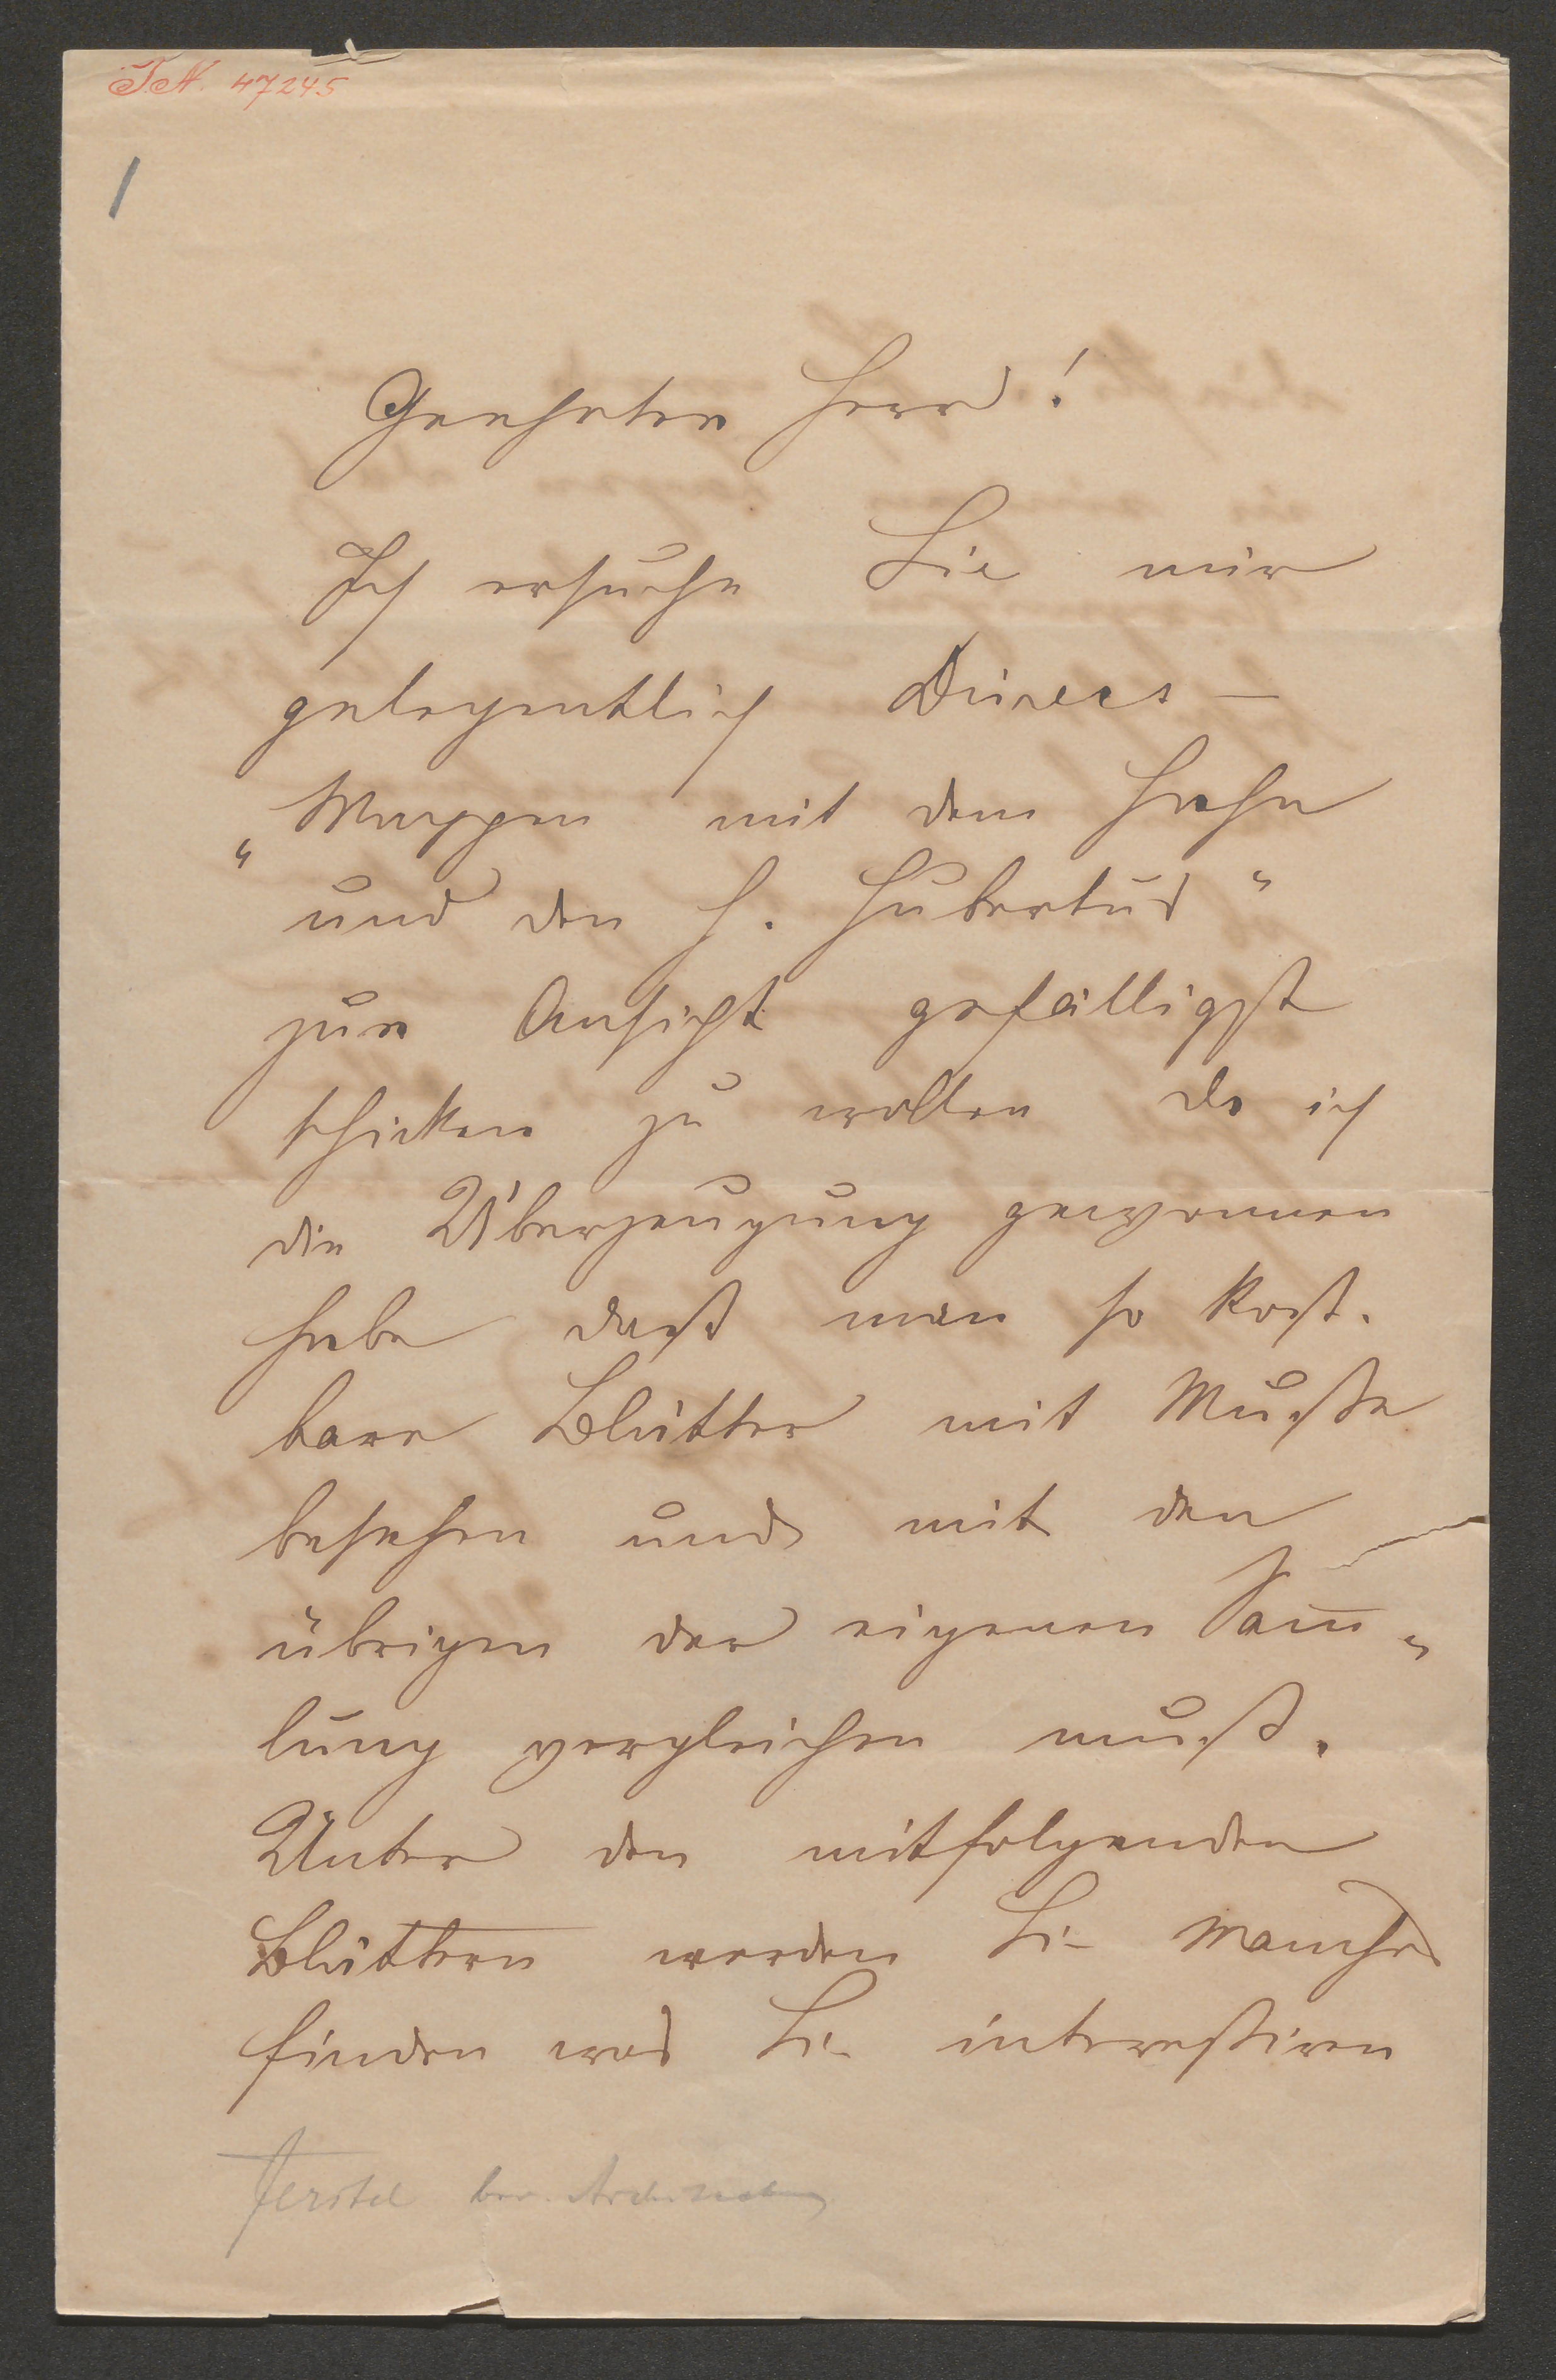 I.N. 47245
1
Geehrter Herr!
Ich ersuche Sie mir
gelegentlich Dürers –
„Wappen mit dem Hahn
und den h. Hubertus“
zur Ansicht gefälligst
schicken zu wollen da ich
die Überzeugung gewonnen
habe daß man so kost-
bare Blätter mit Muße
besehen und mit den
übrigen der eigenen Sam̄-
lung vergleichen muß.
Unter den mitfolgenden
Blättern werden Sie Manches
finden was Sie interessiren
Ferstel ber. Architekt